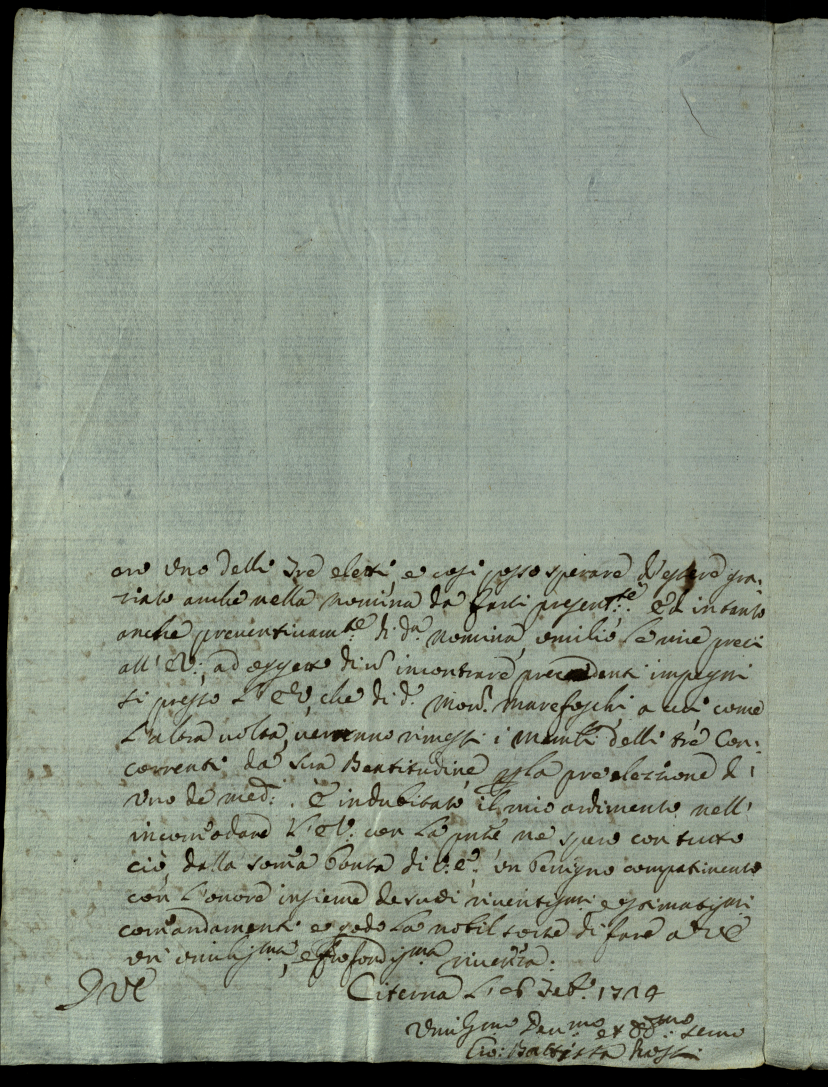 ero uno delli tre eletti, e cosi posso sperare d'essere gra-
ziato anche nella nomina da farsi presentte. Ed in tanto
anche preventivamte di da nomina umilio le mie preci
all' E.V., ad oggetto di n incontrare precedenti impegni
si presso L' E.V., che di d. Monr. Marefoschi a cui come
l'altra volta, verranno rimessi i meriti delli trè Con-
correnti da Sua Beatitudine p la preelezione di
uno de med. È indubitato il mio ardimento nell'
incomodare L'E.V. con la pnte ne spero con tutto
ciò, dalla somma bontà di V.E. un benigno compatimento
con l'onore insieme de suoi riveritissmi e stimatissmi
comandamenti e godo la nobil sorte di fare a V.E.
umilissma, e profondissma riverenza.
D.V.E. Citerna L' 26 Feb.
Umilissmo Devmo et Obmo servo
Gio: Battista